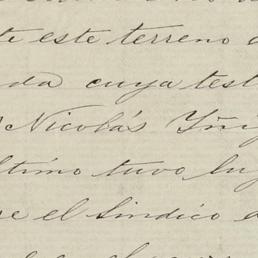 te este terreno
da cuya test
Nicolás Yñig
ltimo tuvo lu
se el Sindico d